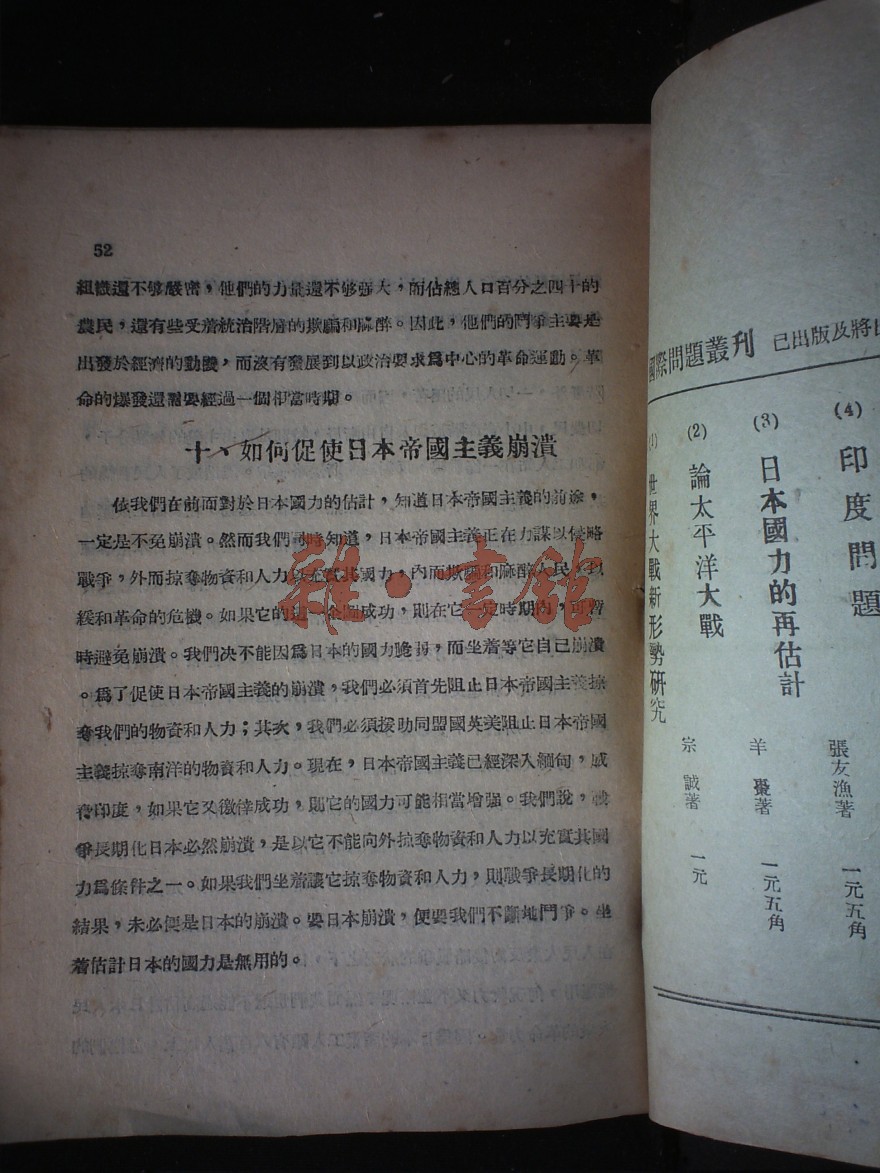 52
組織還不够嚴密，他們的力量還不够强大，而佔總人口百分之四十的
農民，還有些受着統治階層的欺騙和麻醉。因此，他們的鬥爭主要是
出發於經濟的動機，而沒有發展到以政治要求爲中心的革命運動。革
命的爆發還需要經過一個相當時期。
十、如何促使日本帝國主義崩潰
依我們在前面對於日本國力的估計，知道日本帝國主義的前途，
一定是不免崩潰。然而我們同時知道，日本帝國主義正在力謀以侵略
戰爭，外而掠奪物資和人力以充實其國力，內而欺騙和麻醉人民，以
緩和革命的危機。如果它的這一企圖成功，則在它一定時期內，可暫
時避免崩潰。我們决不能因爲日本的國力脆弱，而坐着等它自己崩潰
。爲了促使日本帝國主義的崩潰，我們必須首先阻止日本帝國主義掠
奪我們的物資和人力；其次，我們必須援助同盟國英美阻止日本帝國
主義掠奪南洋的物資和人力。現在，日本帝國主義已經深入緬甸，威
脅印度，如果它又徼倖成功，則它的國力可能相當增强。我們說，戰
爭長期化日本必然崩潰，是以它不能向外掠奪物資和人力以充實其國
力爲條件之一。如果我們坐着讓它掠奪物資和人力，則戰爭長期化的
結果，未必便是日本的崩潰。要日本崩潰，便要我們不斷地鬥爭。坐
着估計日本的國力是無用的。
雜·書館
國際問題叢刊 已出版及將出
(4) 印度問題 張友漁著 一元五角
(3) 日本國力的再估計 羊棗著 一元五角
(2) 論太平洋大戰 宗誠著 一元
(1) 世界大戰新形勢研究